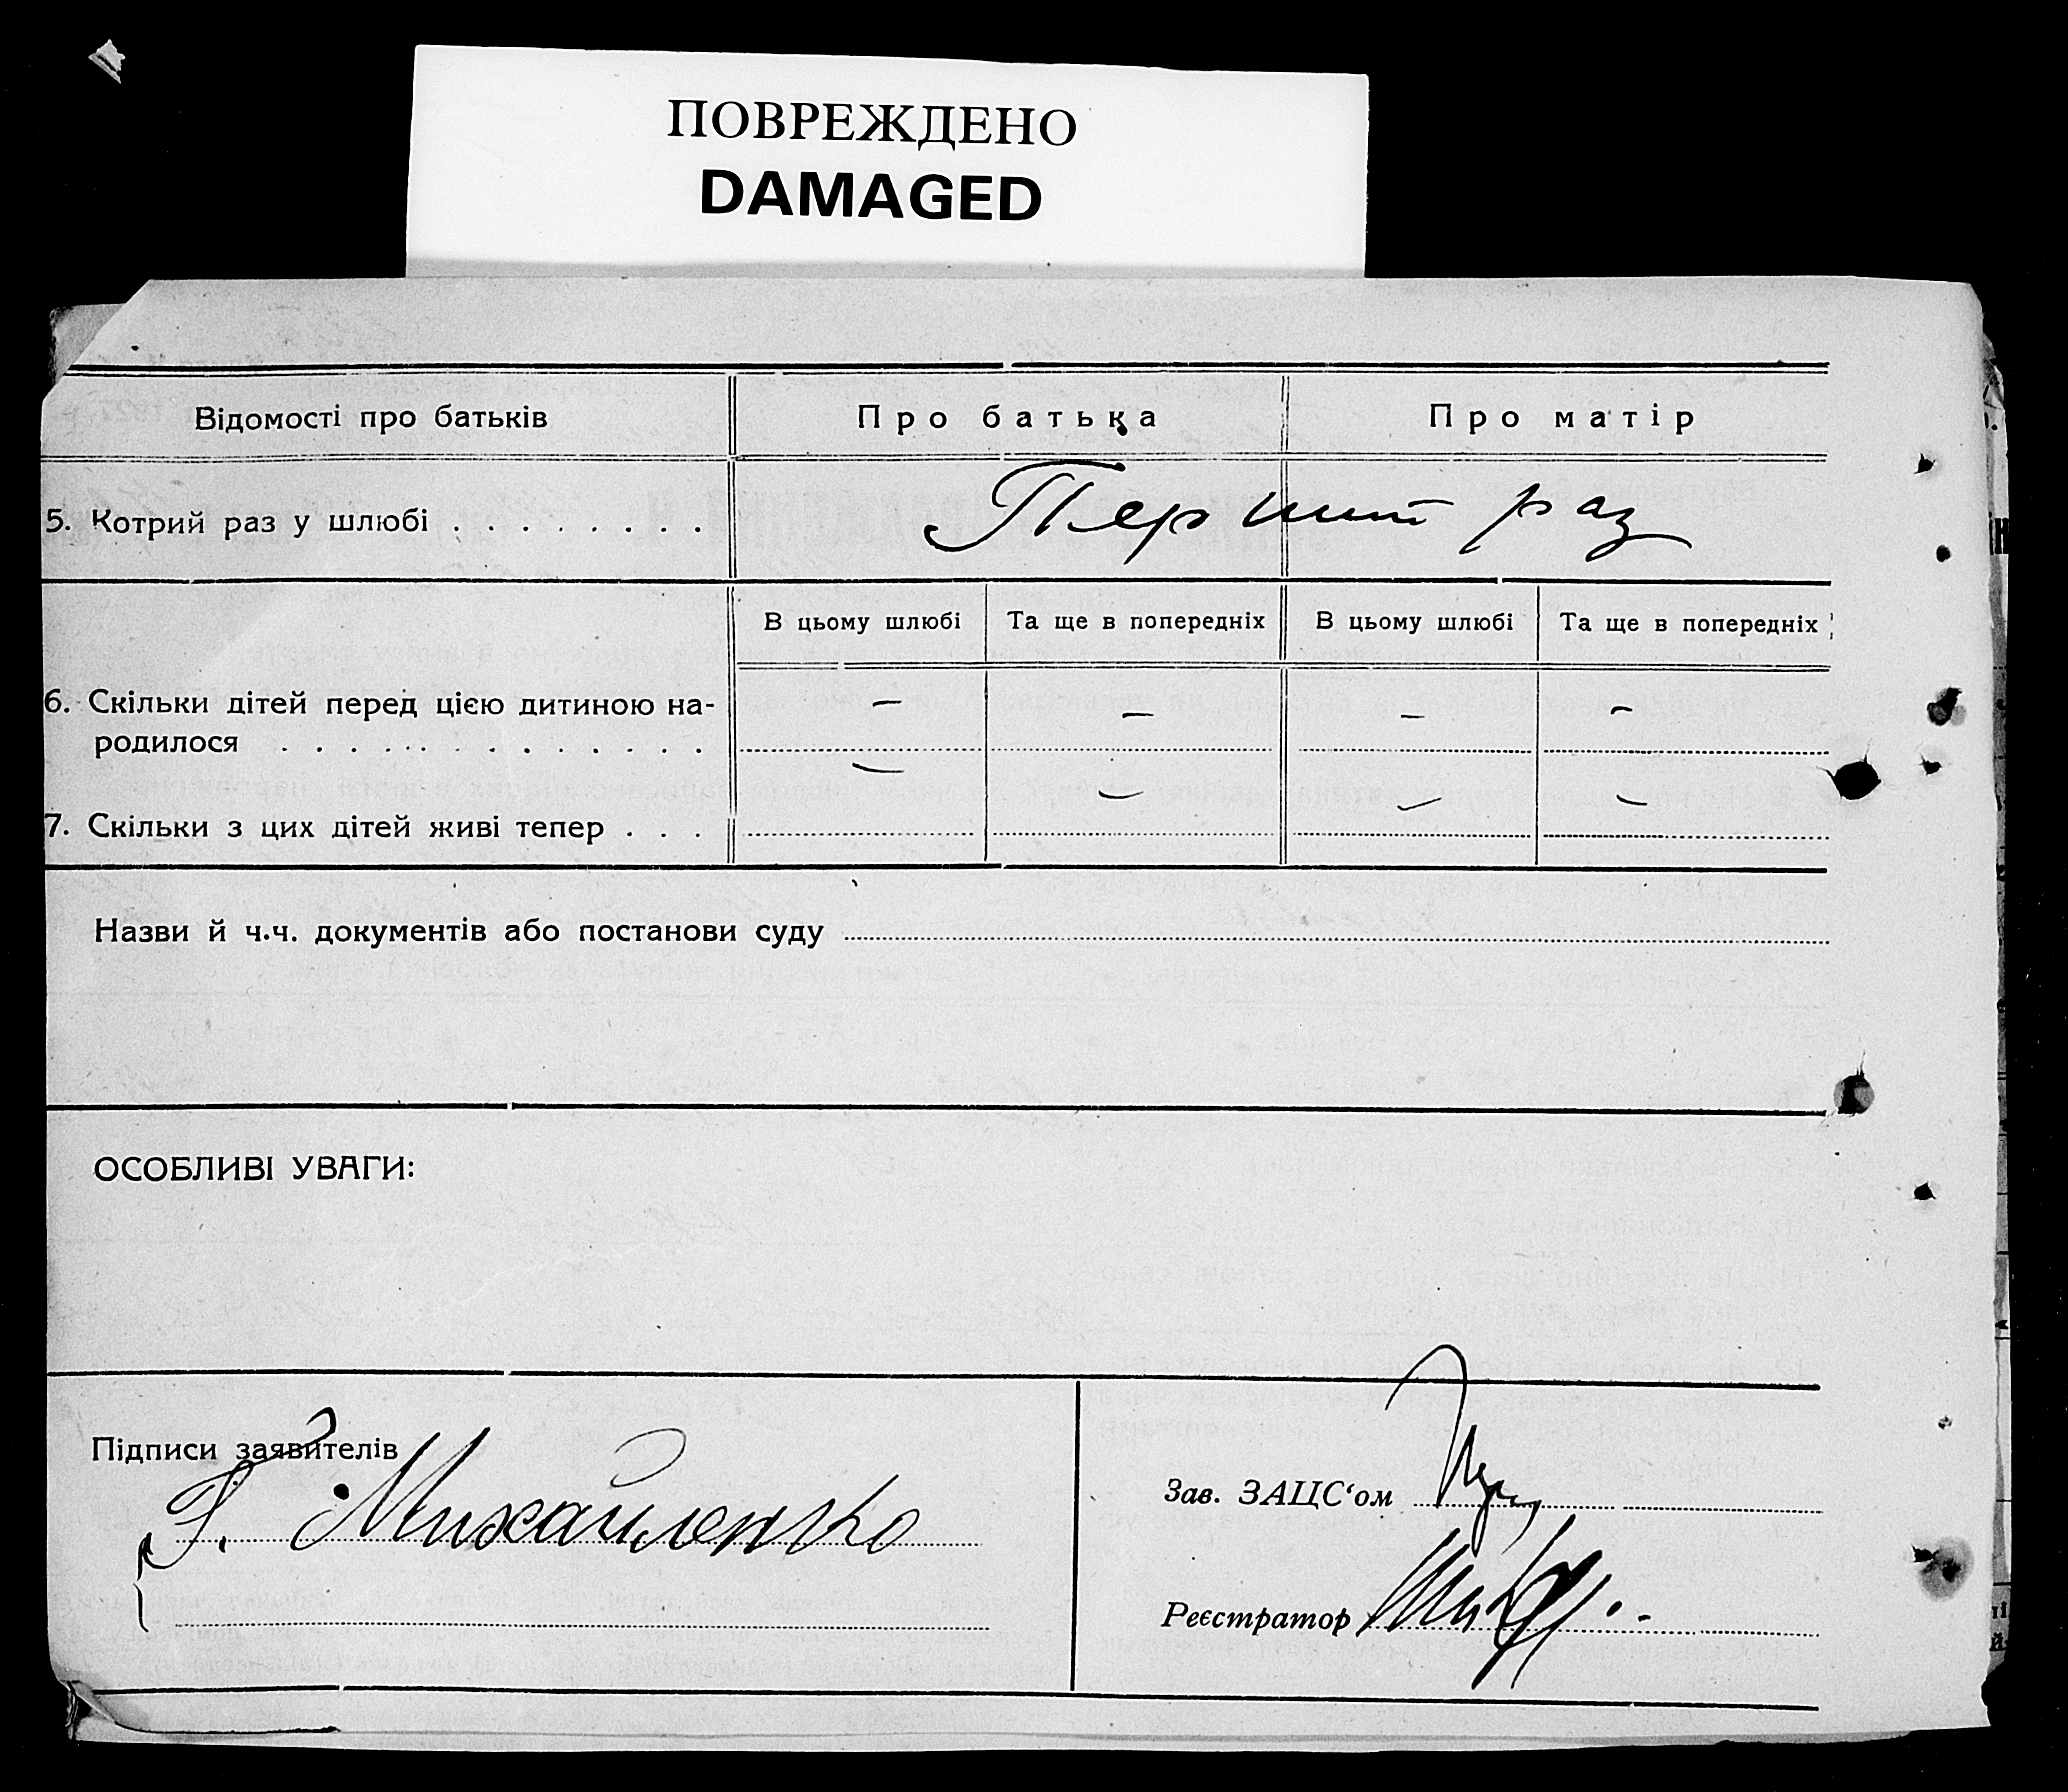 ПОВРЕЖДЕНО
DAMAGED
Відомості про батьків
Про батька
Про матір
5. Котрий раз у шлюбі . . . . . . . .
Перший раз
В цьому шлюбі
Та ще в попередніх
В цьому шлюбі
Та ще в попередніх
6. Скільки дітей перед цією дитиною на-
родилося . . . . . . . . . . . . .
— — — —
7. Скільки з цих дітей живі тепер . . .
— — — —
Назви й ч.ч. документів або постанови суду
ОСОБЛИВІ УВАГИ:
Підписи заявителів
Г. Михайленко
Зав. ЗАЦС‘ом
Реєстратор